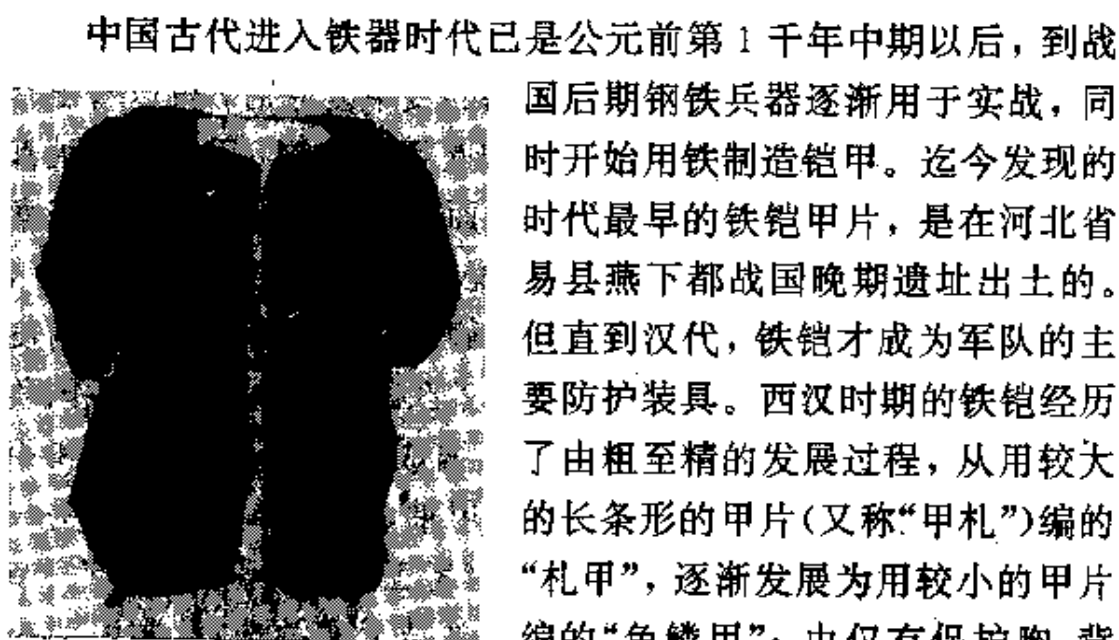 中国古代进入铁器时代已是公元前第1千年中期以后，到战
国后期钢铁兵器逐渐用于实战，同
时开始用铁制造铠甲。迄今发现的
时代最早的铁铠甲片，是在河北省
易县燕下都战国晚期遗址出土的。
但直到汉代，铁铠才成为军队的主
要防护装具。西汉时期的铁铠经历
了由粗至精的发展过程，从用较大
的长条形的甲片（又称“甲札”）编的
“札甲”，逐渐发展为用较小的甲片
编的“鱼鳞甲”；由仅有保护胸、背